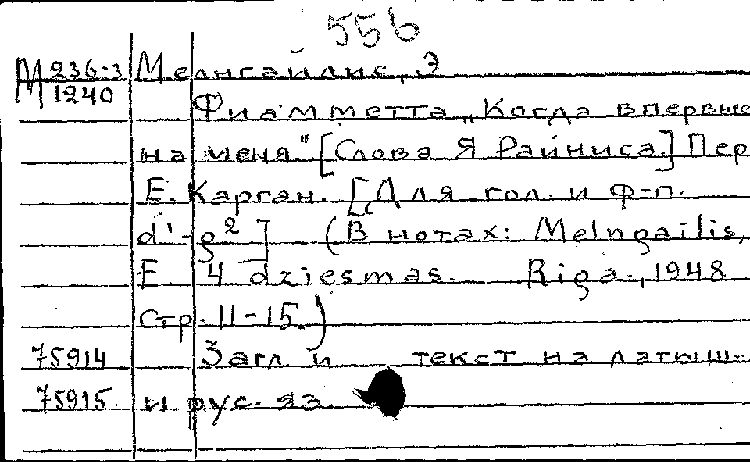 556
М 236-3 Мелнгайлис, Э
1240
Фиамметта „Когда впервые
на меня" [Слова Я Райниса] Пер
Е. Карган. [Для гол. и ф-п.
d¹-g²] (В нотах: Melngailis,
E 4 dziesmas. Riga., 1948
стр. 11-15.)
75914 Загл и текст на латыш-
75915 и рус. яз